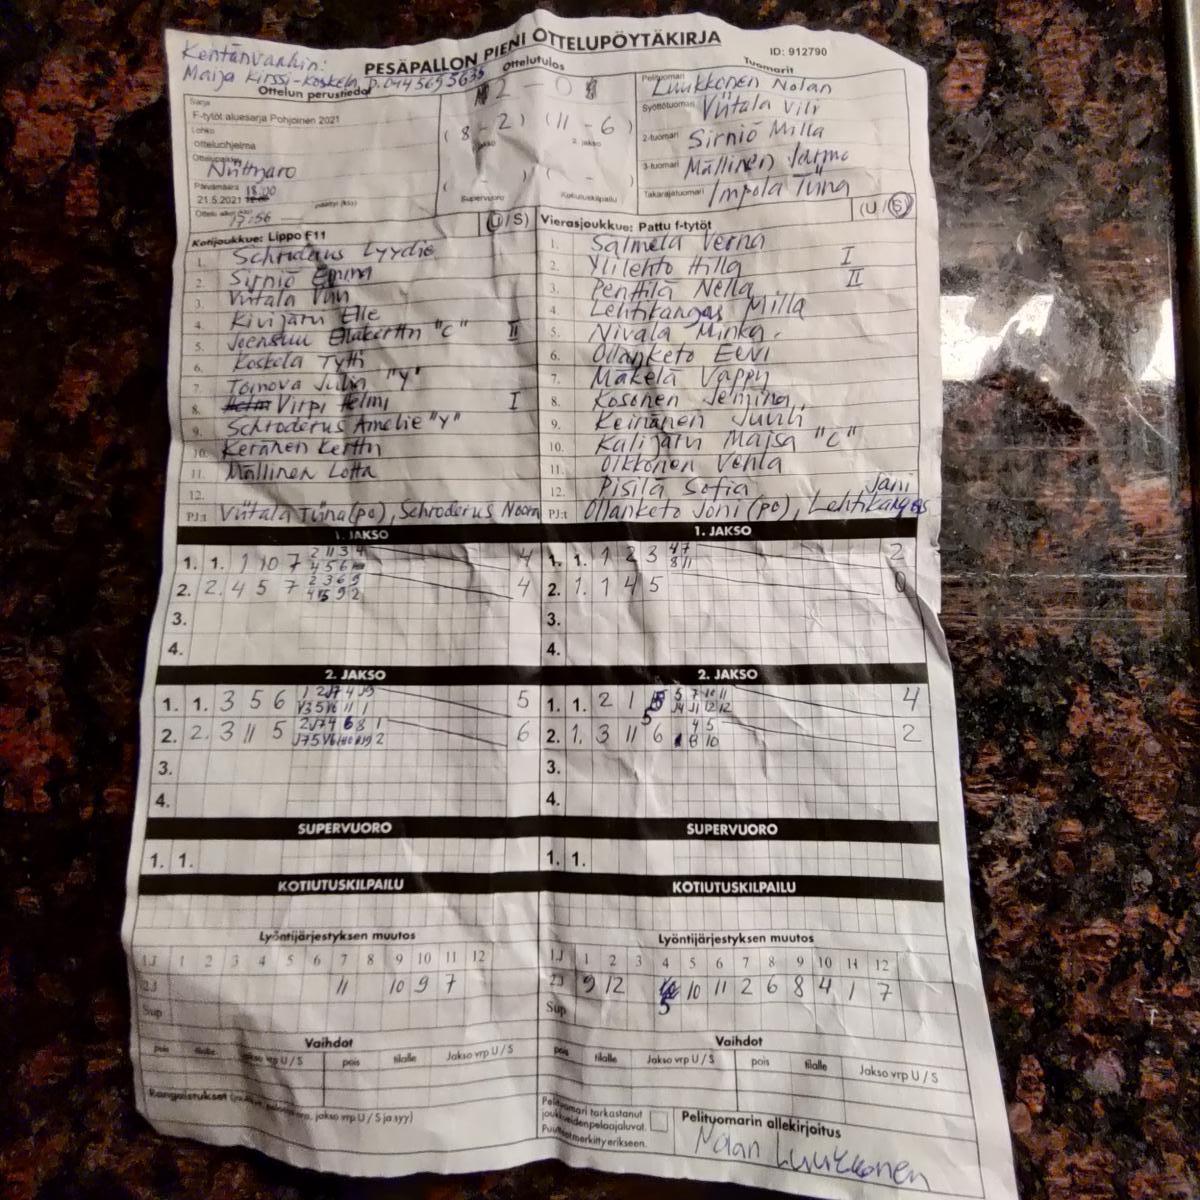 Kentänvanhin:
Maija Kirssi-Koskela
PESÄPALLON PIENI OTTELUPÖYTÄKIRJA
ID: 912790
Ottelun perustiedot
Ottelutulos
Tuomarit
Sarja
F-tytöt aluesarja Pohjoinen 2021
Lohko
Otteluohjelma
Ottelupaikka
Niittyaro
Päivämäärä 18:00
21.5.2021
Ottelu alkoi (klo) päättyi (klo)
17:56
2 - 0
(8 - 2) (11 - 6)
1. jakso 2. jakso
( - ) ( - )
Supervuoro Kotiutuskilpailu
Pelituomari Luukkonen Nolan
Syöttötuomari Viitala Vili
2-tuomari Sirniö Milla
3-tuomari Mällinen Jarmo
Takarajatuomari Impola Tiina
Kotijoukkue: Lippo F11 (U/S)
1. Schroderus Lyydie
2. Sirniö Emma
3. Viitala
4. Kivijärvi Elle
5. Joensuu "C" II
6. Koskela Tytti
7. Toinova Julia "Y"
8. Virpi Helmi I
9. Schroderus Amelie "Y"
10. Keränen Kerttu
11. Mällinen Lotta
12.
PJ:t Viitala Tiina (po), Schroderus Noora
Vierasjoukkue: Pattu f-tytöt (U/S)
1. Salmela Verna
2. Ylilehto Hilla I
3. Penttilä Nella II
4. Lehtikangas Milla
5. Nivala Minka
6. Ollanketo Eevi
7. Mäkelä Vappu
8. Kosonen Jemina
9. Keinänen Juuli
10. Kalijärvi Maisa "C"
11. Oikkonen Venla
12. Pisilä Sofia
PJ:t Ollanketo Joni (po), Lehtikangas Jani
1. JAKSO
1. 1. 1 10 7 2 11 3 4 4
4 5 6
2. 2. 4 5 7 2 3 6 9 4
3.
4.
1. JAKSO
1. 1. 1 2 3 4 7 2
8 11
2. 1. 1 4 5 0
3.
4.
2. JAKSO
1. 1. 3 5 6 5
2. 2. 3 11 5 6
3.
4.
2. JAKSO
1. 1. 2 1 5 5 7 10 11 4
2. 1. 3 11 6 4 5 2
8 10
3.
4.
SUPERVUORO
1. 1.
SUPERVUORO
1. 1.
KOTIUTUSKILPAILU
KOTIUTUSKILPAILU
Lyöntijärjestyksen muutos
1J 1 2 3 4 5 6 7 8 9 10 11 12
2J 11 10 9 7
Sup
Lyöntijärjestyksen muutos
1J 1 2 3 4 5 6 7 8 9 10 11 12
2J 9 12 5 10 11 2 6 8 4 1 7
Sup
Vaihdot
pois tilalle Jakso vrp U / S pois tilalle Jakso vrp U / S
Vaihdot
pois tilalle Jakso vrp U / S pois tilalle Jakso vrp U / S
Rangaistukset jakso vrp U / S ja syy)
Pelituomari tarkastanut
joukkueiden pelaajaluvat.
Puutteet merkitty erikseen.
Pelituomarin allekirjoitus
Nolan Luukkonen